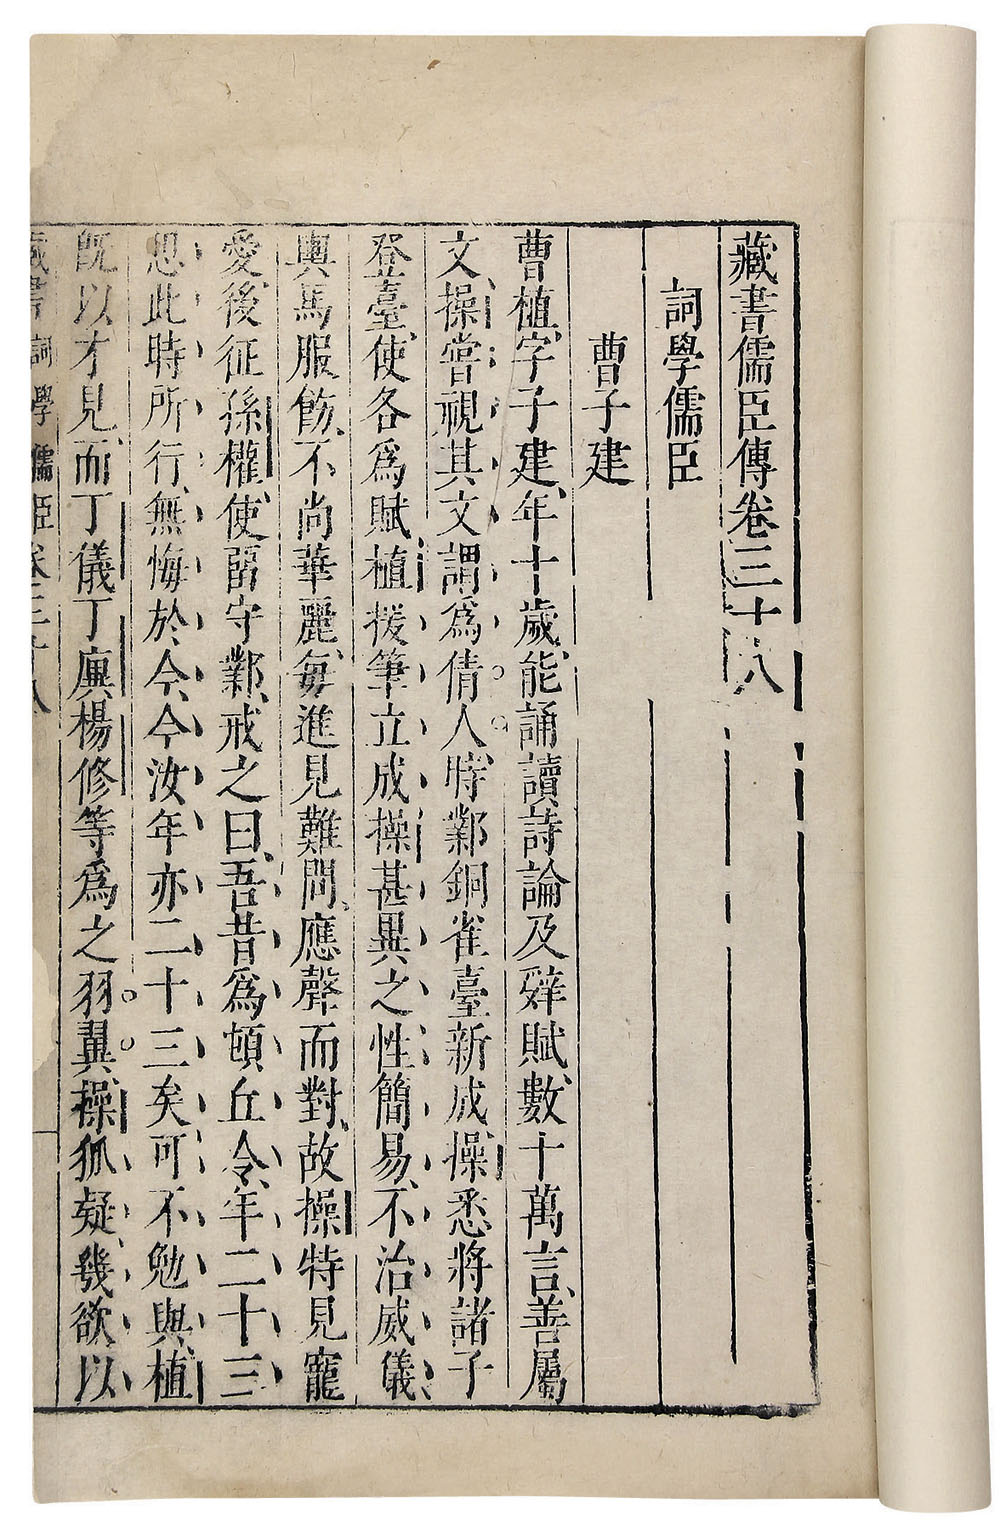 藏書儒臣傳卷三十八
詞學儒臣
曹子建
曹植、字子建、年十歲、能誦讀詩論及辭賦、數十萬言、善屬
文、操嘗視其文、謂爲倩人、時鄴銅雀臺新成、操悉將諸子
登臺、使各爲賦、植援筆立成、操甚異之、性簡易、不治威儀
輿馬服飭、不尚華麗、每進見難問、應聲而對、故操特見寵
愛、後征孫權、使留守鄴、戒之曰、吾昔爲頓丘令、年二十三
思此時所行、無悔於今、今汝年亦二十三矣、可不勉與、植
旣以才見、而丁儀丁廙楊修等爲之羽翼、操狐疑、幾欲以
藏書 詞學儒臣卷三十八